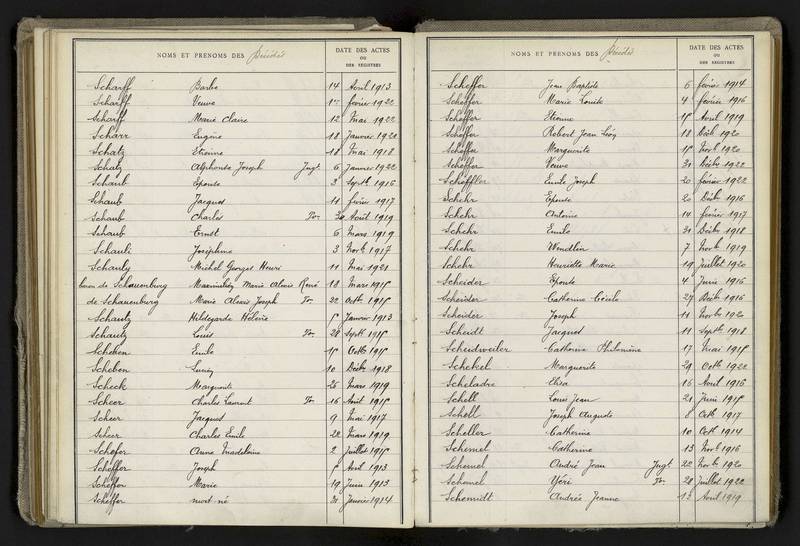 NOMS ET PRENOMS DES Décédés
DATE DES ACTES
OU
DES REGISTRES
Scharff Barbe 14 Avril 1913
Scharff Veuve février 1922
Scharff Marie Claire 12 Mai 1922
Scharr Eugène 18 Janvier 1920
Schatz Etienne 18 Mai 1918
Schatz Alphonse Joseph Jugt 6 Janvier 1922
Schaub Epouse 3 Septb 1916
Schaub Jacques 11 février 1917
Schaub Charles Tr. 30 Août 1919
Schaub Ernst 6 Mars 1919
Schauli Joséphine 3 Novb 1917
Schauly Michel Georges Henri 11 Mai 1921
baron de Schauenburg Maximilien Marie Alexis René 18 Mars 1915
de Schauenburg Marie Alexis Joseph Tr. 22 Octb 1915
Schautz Hildegarde Hélène 5 Janvier 1913
Schautz Louis Tr. 28 Septb 1915
Scheben Emile 15 Octb 1915
Scheben 10 Décbr 1918
Scheck Marguerite 25 Mars 1919
Scheer Charles Laurent Tr. 16 Août 1915
Scheer Jacques 9 Mai 1917
Scheer Charles Emile 22 Mars 1919
Schefer Anne Madeleine 2 Juillet 1915
Scheffer Joseph 5 Avril 1913
Scheffer Marie 19 Juin 1913
Scheffer mort-né 31 Janvier 1914
NOMS ET PRENOMS DES Décédés
DATE DES ACTES
OU
DES REGISTRES
Scheffer Jean Baptiste 6 février 1914
Scheffer Marie Louise 4 février 1916
Scheffer Etienne 15 Avril 1919
Scheffer Robert Jean Léon 18 Décb 1920
Scheffer Marguerite 15 Novb 1920
Scheffer Veuve 31 Décbr 1922
Scheffler Emile Joseph 20 février 1922
Schehr Epouse 20 Décbr 1916
Schehr Antoine 14 février 1917
Schehr Emile 31 Décbr 1918
Schehr Wendlin 7 Novb 1919
Schehr Henriette Marie 19 Juillet 1920
Scheider Epouse 4 Juin 1916
Scheider Catherine Cécile 27 Décbr 1916
Scheider Joseph 11 Novbr 1920
Scheidt Jacques 11 Septb 1918
Scheidweiler Catherine Philomène 17 Mai 1915
Schekel Marguerite 29 Octb 1922
Scheladre Elisa 16 Avril 1916
Schell Louis Jean 21 Juin 1915
Schell Joseph Auguste 8 Octb 1917
Scheller Catherine 10 Octb 1914
Schemel Catherine 13 Novb 1916
Schemel André Jean Jugt 22 Novb 1920
Schemel Yéri Tr. 28 Juillet 1922
Schemidt Andrée Jeanne Avril 1919